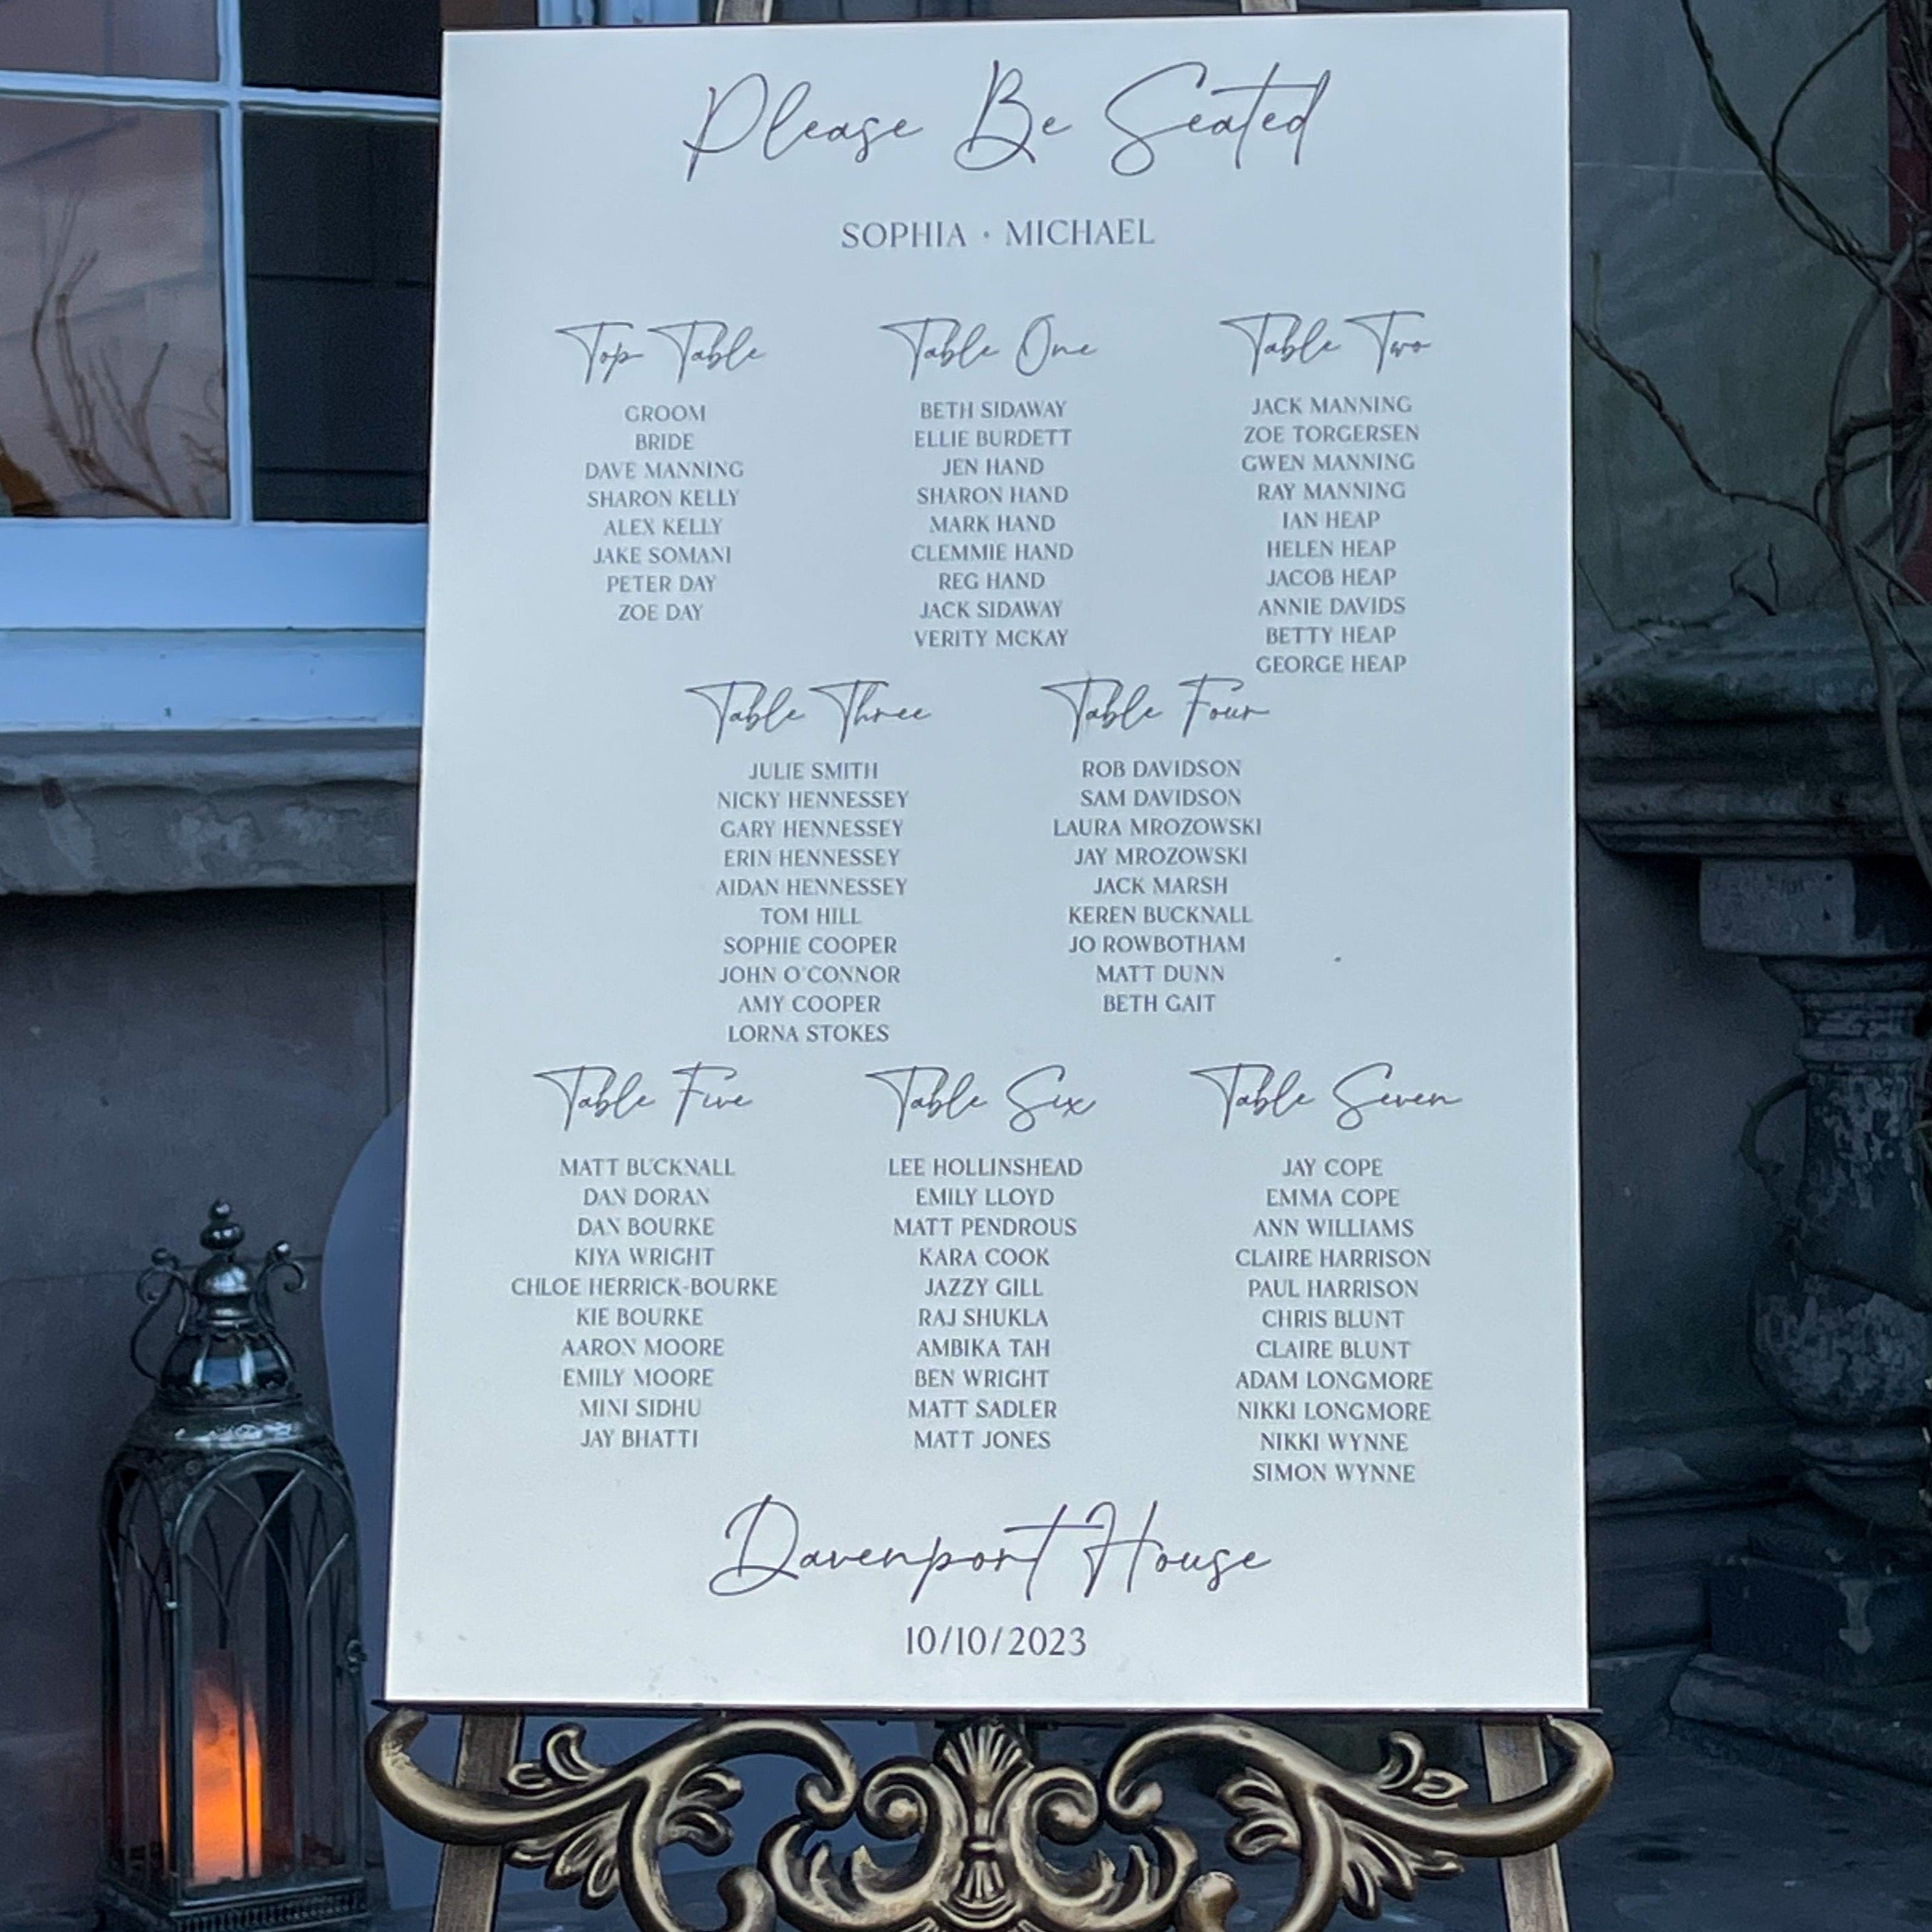 Please Be Seated
SOPHIA • MICHAEL
Top Table
GROOM
BRIDE
DAVE MANNING
SHARON KELLY
ALEX KELLY
JAKE SOMANI
PETER DAY
ZOE DAY
Table One
BETH SIDAWAY
ELLIE BURDETT
JEN HAND
SHARON HAND
MARK HAND
CLEMMIE HAND
REG HAND
JACK SIDAWAY
VERITY MCKAY
Table Two
JACK MANNING
ZOE TORGERSEN
GWEN MANNING
RAY MANNING
IAN HEAP
HELEN HEAP
JACOB HEAP
ANNIE DAVIDS
BETTY HEAP
GEORGE HEAP
Table Three
JULIE SMITH
NICKY HENNESSEY
GARY HENNESSEY
ERIN HENNESSEY
AIDAN HENNESSEY
TOM HILL
SOPHIE COOPER
JOHN O'CONNOR
AMY COOPER
LORNA STOKES
Table Four
ROB DAVIDSON
SAM DAVIDSON
LAURA MROZOWSKI
JAY MROZOWSKI
JACK MARSH
KEREN BUCKNALL
JO ROWBOTHAM
MATT DUNN
BETH GAIT
Table Five
MATT BUCKNALL
DAN DORAN
DAN BOURKE
KIYA WRIGHT
CHLOE HERRICK-BOURKE
KIE BOURKE
AARON MOORE
EMILY MOORE
MINI SIDHU
JAY BHATTI
Table Six
LEE HOLLINSHEAD
EMILY LLOYD
MATT PENDROUS
KARA COOK
JAZZY GILL
RAJ SHUKLA
AMBIKA TAH
BEN WRIGHT
MATT SADLER
MATT JONES
Table Seven
JAY COPE
EMMA COPE
ANN WILLIAMS
CLAIRE HARRISON
PAUL HARRISON
CHRIS BLUNT
CLAIRE BLUNT
ADAM LONGMORE
NIKKI LONGMORE
NIKKI WYNNE
SIMON WYNNE
Davenport House
10/10/2023